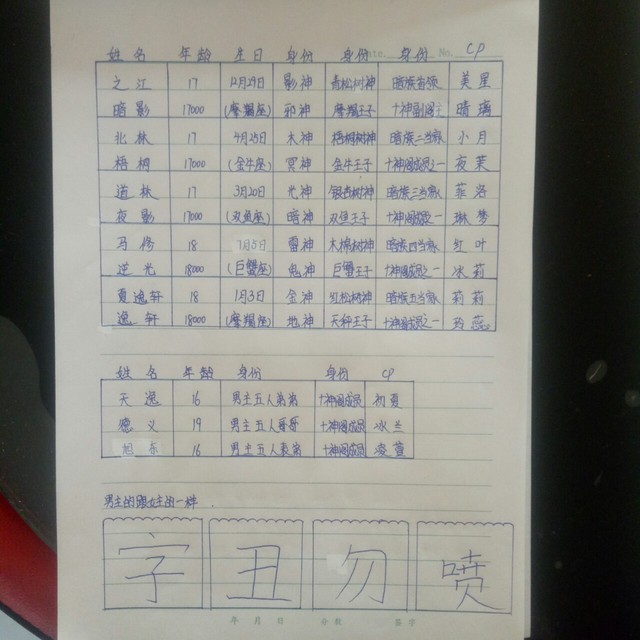 姓名 年龄 生日 身份 身份 身份 No. CP
之江 17 12月29日 影神 青松树神 暗族首领 美里
暗影 17000 (摩羯座) 邪神 摩羯王子 十神副阁主 晴璃
北林 17 4月25日 木神 梧桐树神 暗族二当家 小月
梧桐 17000 (金牛座) 冥神 金牛王子 十神阁成员之一 夜茉
道林 17 3月20日 光神 银杏树神 暗族三当家 菲洛
夜影 17000 (双鱼座) 暗神 双鱼王子 十神阁成员一 琳梦
马修 18 7月5日 雷神 木棉树神 暗族四当家 红叶
逆光 18000 (巨蟹座) 鬼神 巨蟹王子 十神阁成员之一 冰莉
夏逸轩 18 1月3日 金神 红松树神 暗族五当家 莉莉
逸轩 18000 (摩羯座) 地神 天秤王子 十神阁成员之一 玛蕊
姓名 年龄 身份 身份 CP
天逸 16 男主五人弟弟 十神阁成员 初夏
德义 19 男主五人哥哥 十神阁成员 冰兰
旭东 16 男主五人表弟 十神阁成员 凌萱
男主的跟女主的一样.
字丑勿喷
年 月 日